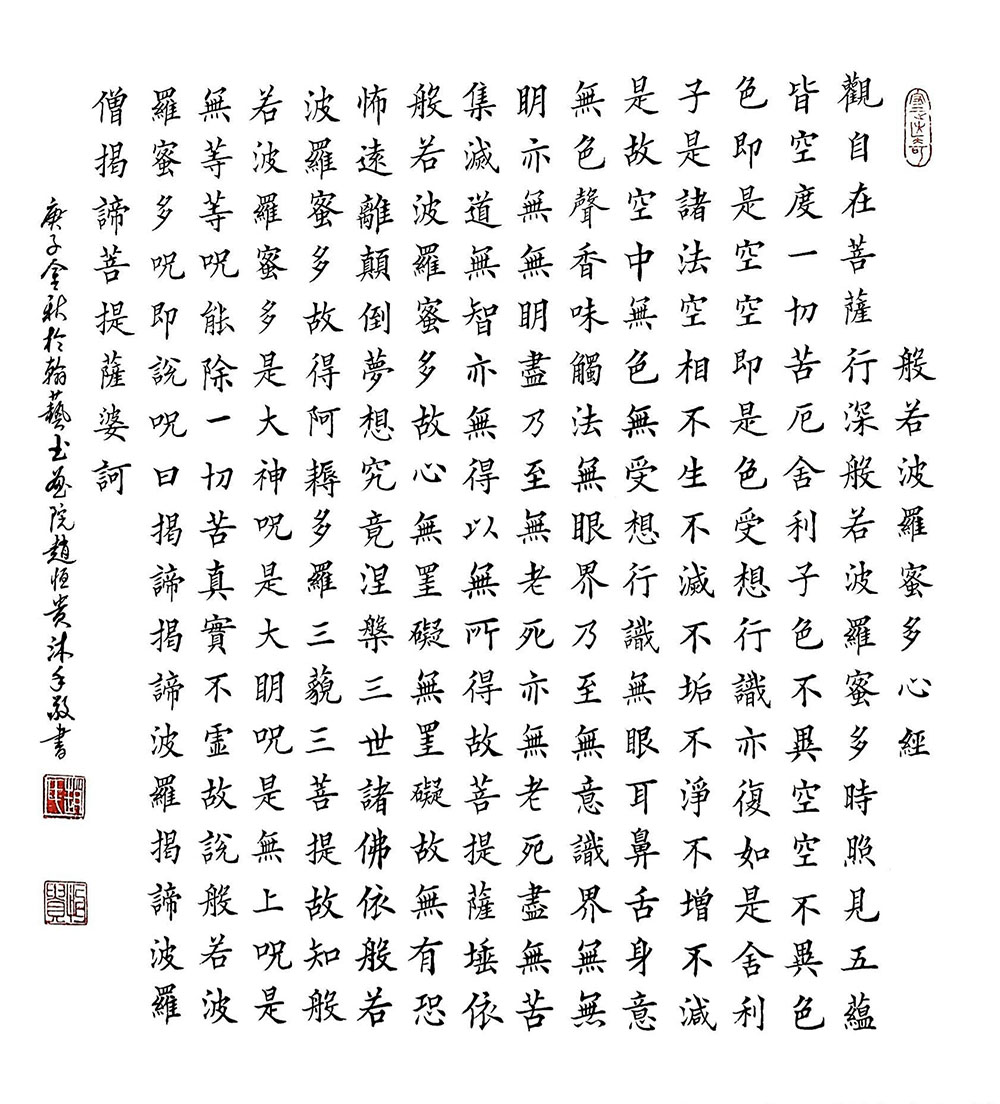 般若波羅蜜多心經
觀自在菩薩行深般若波羅蜜多時照見五蘊
皆空度一切苦厄舍利子色不異空空不異色
色即是空空即是色受想行識亦復如是舍利
子是諸法空相不生不滅不垢不淨不增不減
是故空中無色無受想行識無眼耳鼻舌身意
無色聲香味觸法無眼界乃至無意識界無無
明亦無無明盡乃至無老死亦無老死盡無苦
集滅道無智亦無得以無所得故菩提薩埵依
般若波羅蜜多故心無罣礙無罣礙故無有恐
怖遠離顛倒夢想究竟涅槃三世諸佛依般若
波羅蜜多故得阿耨多羅三藐三菩提故知般
若波羅蜜多是大神咒是大明咒是無上咒是
無等等咒能除一切苦真實不虛故説般若波
羅蜜多咒即説咒曰揭諦揭諦波羅揭諦波羅
僧揭諦菩提薩婆訶
庚子金秋於翰藝書畫院趙恒貴沐手敬書